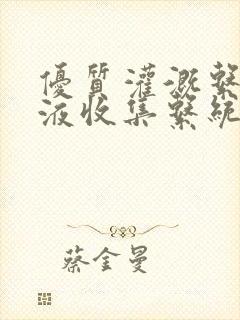 優質灌溉繫
液收集繫統
蔡金曼